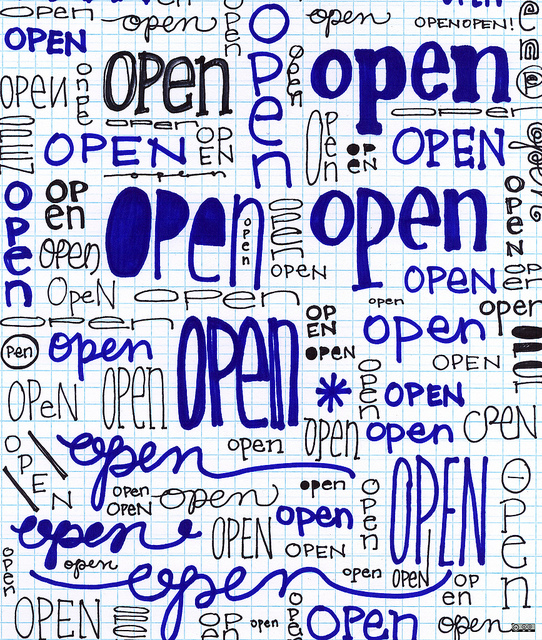 open
open
open
open
OPENOPEN!
OPEN
open
open
open
open
OPEN
open
open
OPEN
OP
EN
open
OP
EN
OPEN
open
OP
en
open
open
open
open
open
open
open
OPEN
OPEN
OPeN
open
open
open
open
OP
EN
open
open
open
open
OPEN
OPEN
OPeN
open
open
open
OPEN
open
open
OPEN
OPEN
open
open
open
OPEN
open
open
open
OPEN
open
open
open
OPEN
OPEN
open
open
open
open
open
OPEN
op
en
open
OPEN
open
OP
en
open
open
open
open